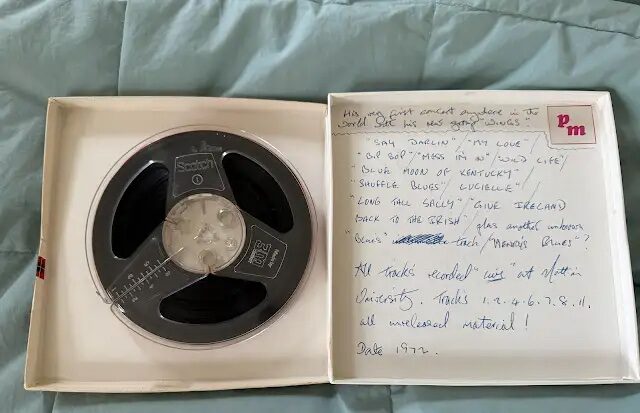 Scotch
3M
His very first concert anywhere in the
world with his new group "WINGS"
pm
"SAY DARLIN"/"MY LOVE"/
"BIP BOP"/"MESS I'M IN"/"WILD LIFE"/
"BLUE MOON OF KENTUCKY"
"SHUFFLE BLUES"/ LUCIELLE"/
"LONG TALL SALLY"/"GIVE IRELAND
BACK TO THE IRISH"/ plus another unknown
"Blues" track/"MEMPHIS BLUES"?
All tracks recorded "live" at Nottin
University. Tracks 1.2.4.6.7.8.11.
all unreleased material!
Date 1972.